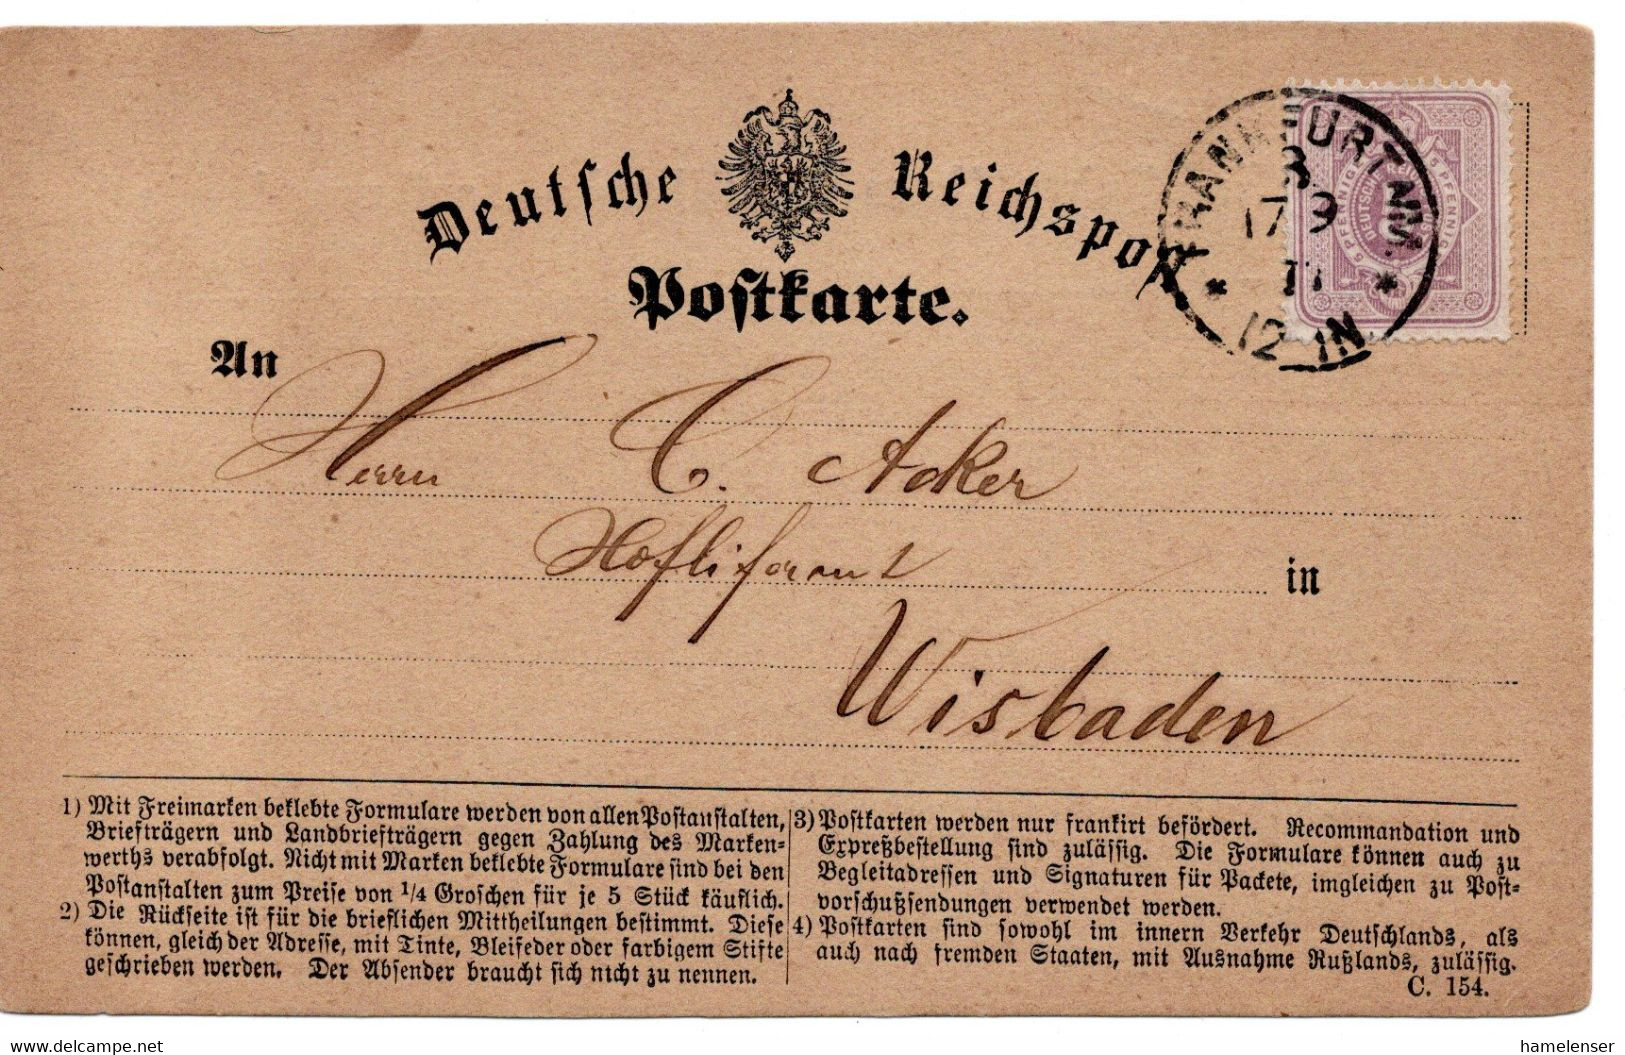 Deutsche Reichspost
Postkarte.
FRANKFURT A.M.
17 9
* *
12-1N.
5 PFENNIG 5 PFENNIG
An
Herrn C. Acker
Hofliferant
in
Wisbaden
1) Mit Freimarken beklebte Formulare werden von allen Postanstalten,
Briefträgern und Landbriefträgern gegen Zahlung des Marken-
werths verabfolgt. Nicht mit Marken beklebte Formulare sind bei den
Postanstalten zum Preise von 1/4 Groschen für je 5 Stück käuflich.
2) Die Rückseite ist für die brieflichen Mittheilungen bestimmt. Diese
können, gleich der Adresse, mit Tinte, Bleifeder oder farbigem Stifte
geschrieben werden. Der Absender braucht sich nicht zu nennen.
3) Postkarten werden nur frankirt befördert. Recommandation und
Expreßbestellung sind zulässig. Die Formulare können auch zu
Begleitadressen und Signaturen für Packete, imgleichen zu Post-
vorschußsendungen verwendet werden.
4) Postkarten sind sowohl im innern Verkehr Deutschlands, als
auch nach fremden Staaten, mit Ausnahme Rußlands, zulässig.
C. 154.
www.delcampe.net
hamelenser